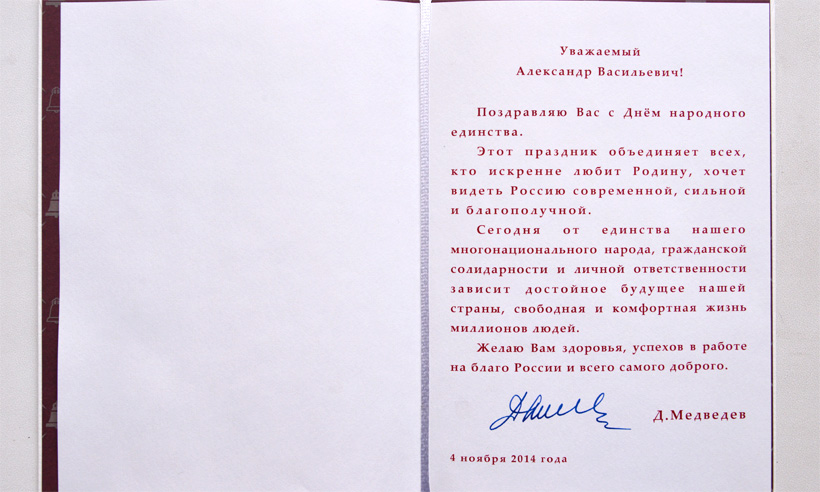 Уважаемый
Александр Васильевич!
Поздравляю Вас с Днём народного
единства.
Этот праздник объединяет всех,
кто искренне любит Родину, хочет
видеть Россию современной, сильной
и благополучной.
Сегодня от единства нашего
многонационального народа, гражданской
солидарности и личной ответственности
зависит достойное будущее нашей
страны, свободная и комфортная жизнь
миллионов людей.
Желаю Вам здоровья, успехов в работе
на благо России и всего самого доброго.
Д.Медведев
4 ноября 2014 года